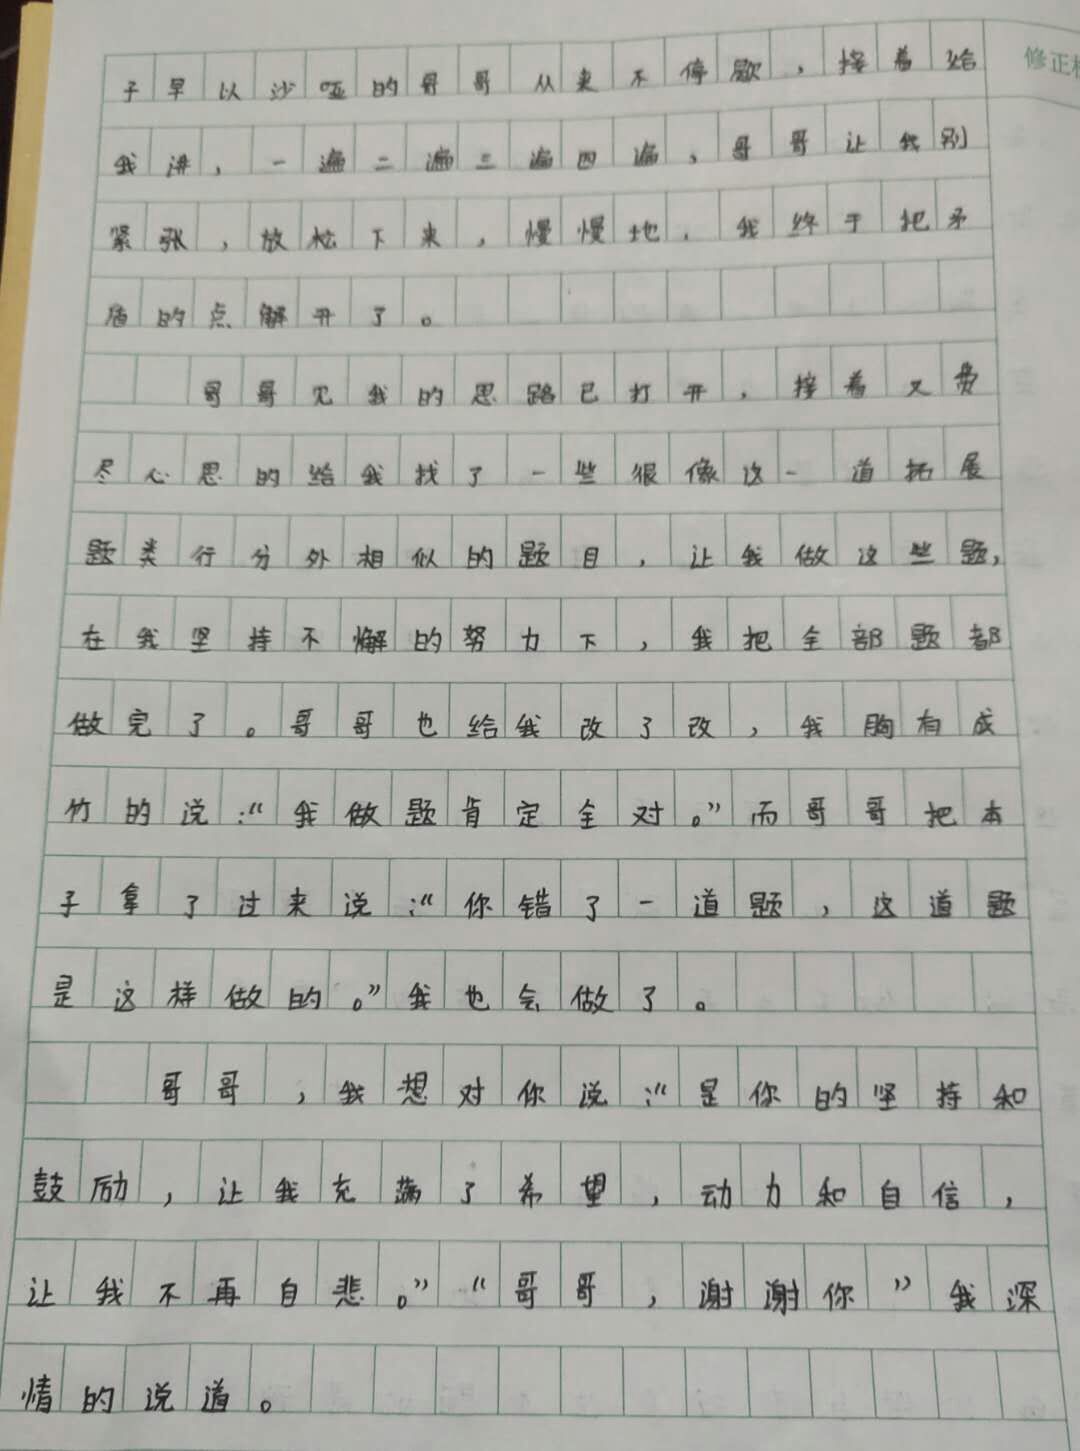 修正
子早以沙哑的哥哥从来不停歇，接着给
我讲，一遍二遍三遍四遍，哥哥让我别
紧张，放松下来，慢慢地，我终于把矛
盾的点解开了。
哥哥见我的思路已打开，接着又费
尽心思的给我找了一些很像这一道拓展
题类行分外相似的题目，让我做这些题，
在我坚持不懈的努力下，我把全部题都
做完了。哥哥也给我改了改，我胸有成
竹的说：“我做题肯定全对。”而哥哥把本
子拿了过来说：“你错了一道题，这道题
是这样做的。”我也会做了。
哥哥，我想对你说：“是你的坚持和
鼓励，让我充满了希望，动力和自信，
让我不再自悲。”“哥哥，谢谢你”我深
情的说道。